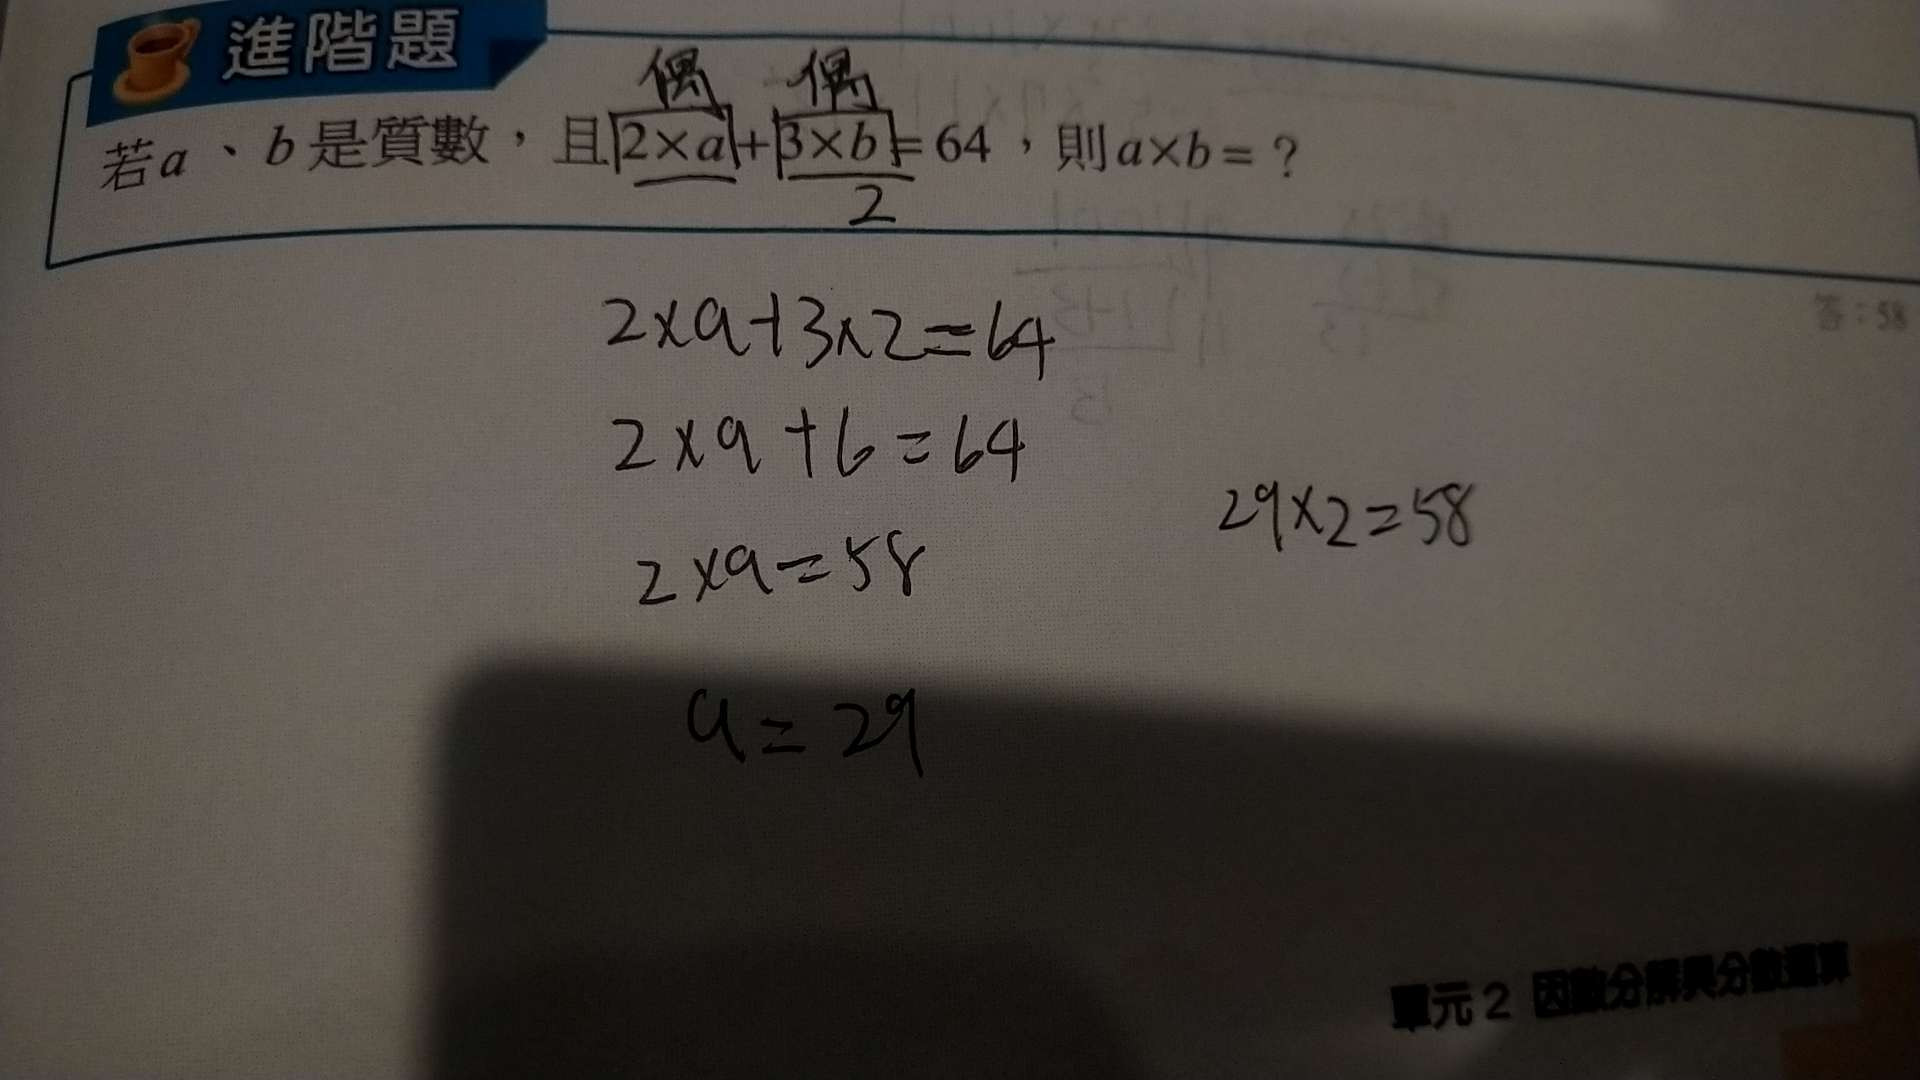 進階題
偶 偶
若a、b是質數，且2×a+3×b=64，則a×b=？
2
答：58
2×a+3×2=64
2×a+6=64
29×2=58
2×a=58
a=29
單元2 因數分解與分數運算